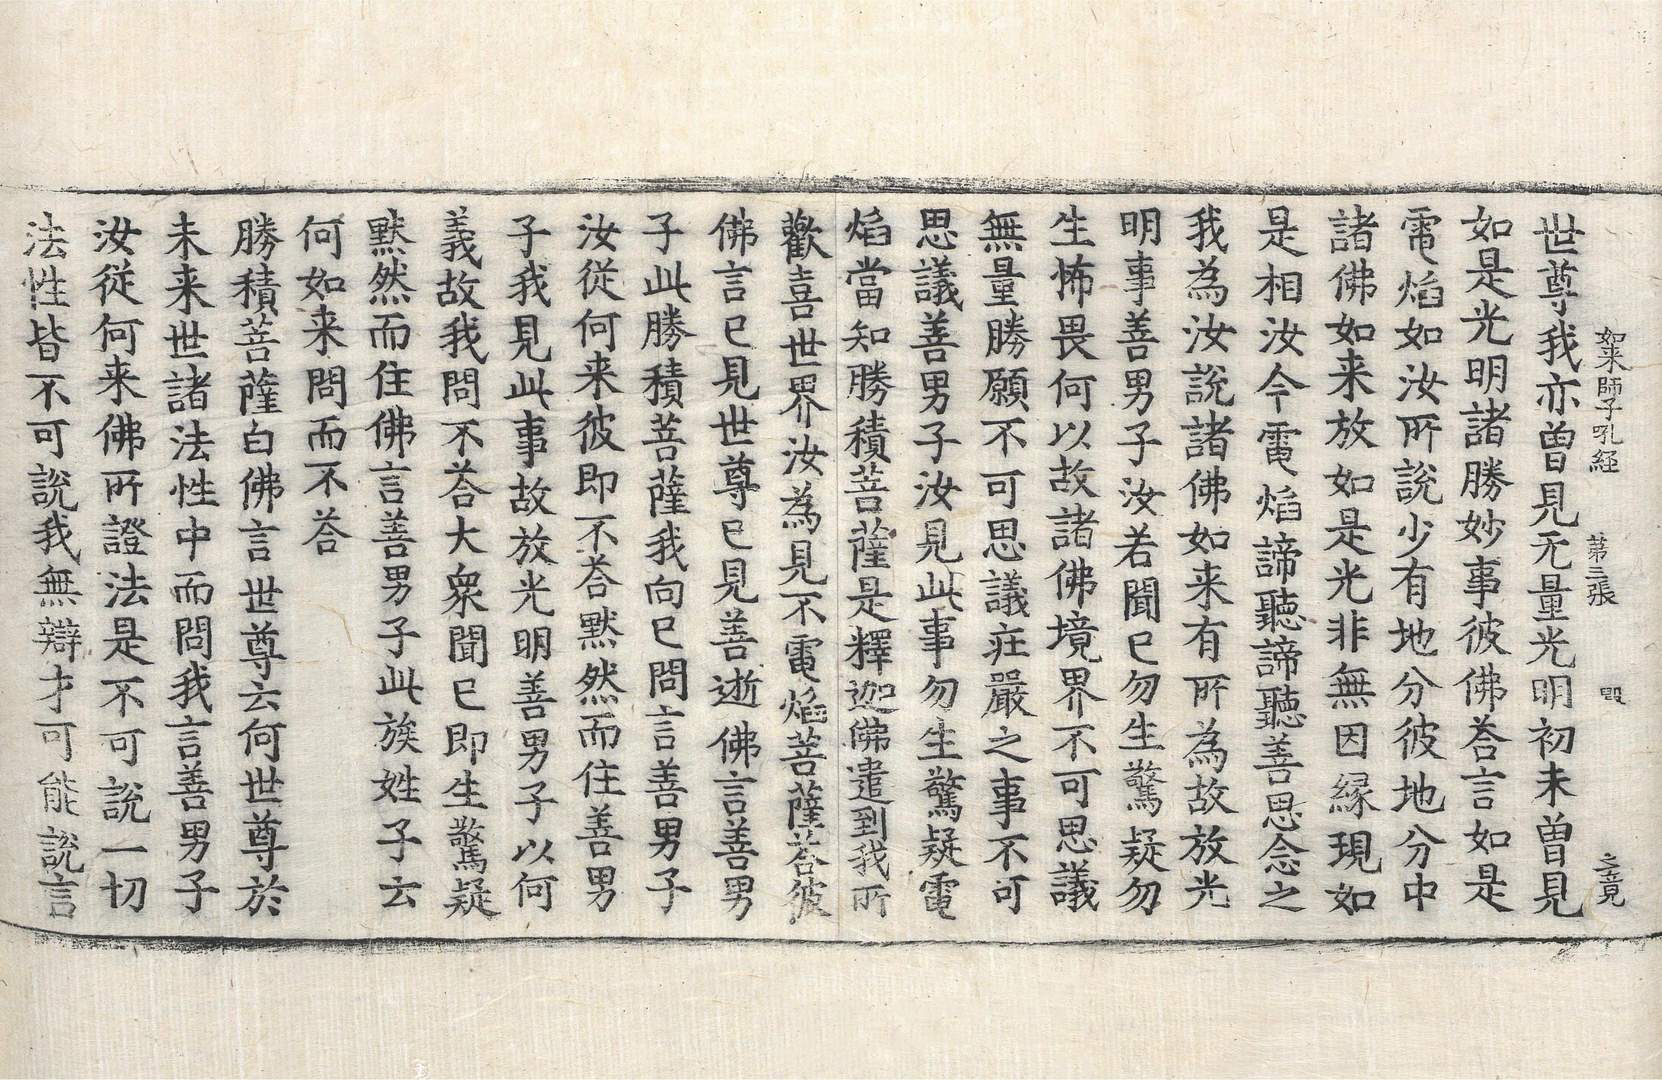 如来師子吼経　第三張　毀　孟見
世尊我亦曾見无量光明初未曾見
如是光明諸勝妙事彼佛荅言如是
電焰如汝所說少有地分彼地分中
諸佛如来放如是光非無因縁現如
是相汝今電焰諦聽諦聽善思念之
我為汝說諸佛如来有所為故放光
明事善男子汝若聞已勿生驚疑勿
生怖畏何以故諸佛境界不可思議
無量勝願不可思議莊嚴之事不可
思議善男子汝見此事勿生驚疑電
焰當知勝積菩薩是釋迦佛遣到我所
歡喜世界汝為見不電焰菩薩荅彼
佛言已見世尊已見善逝佛言善男
子此勝積菩薩我向已問言善男子
汝従何来彼即不荅默然而住善男
子我見此事故放光明善男子以何
義故我問不荅大衆聞已即生驚疑
默然而住佛言善男子此族姓子云
何如来問而不荅
勝積菩薩白佛言世尊云何世尊於
未来世諸法性中而問我言善男子
汝従何来佛所證法是不可說一切
法性皆不可說我無辯才可能說言